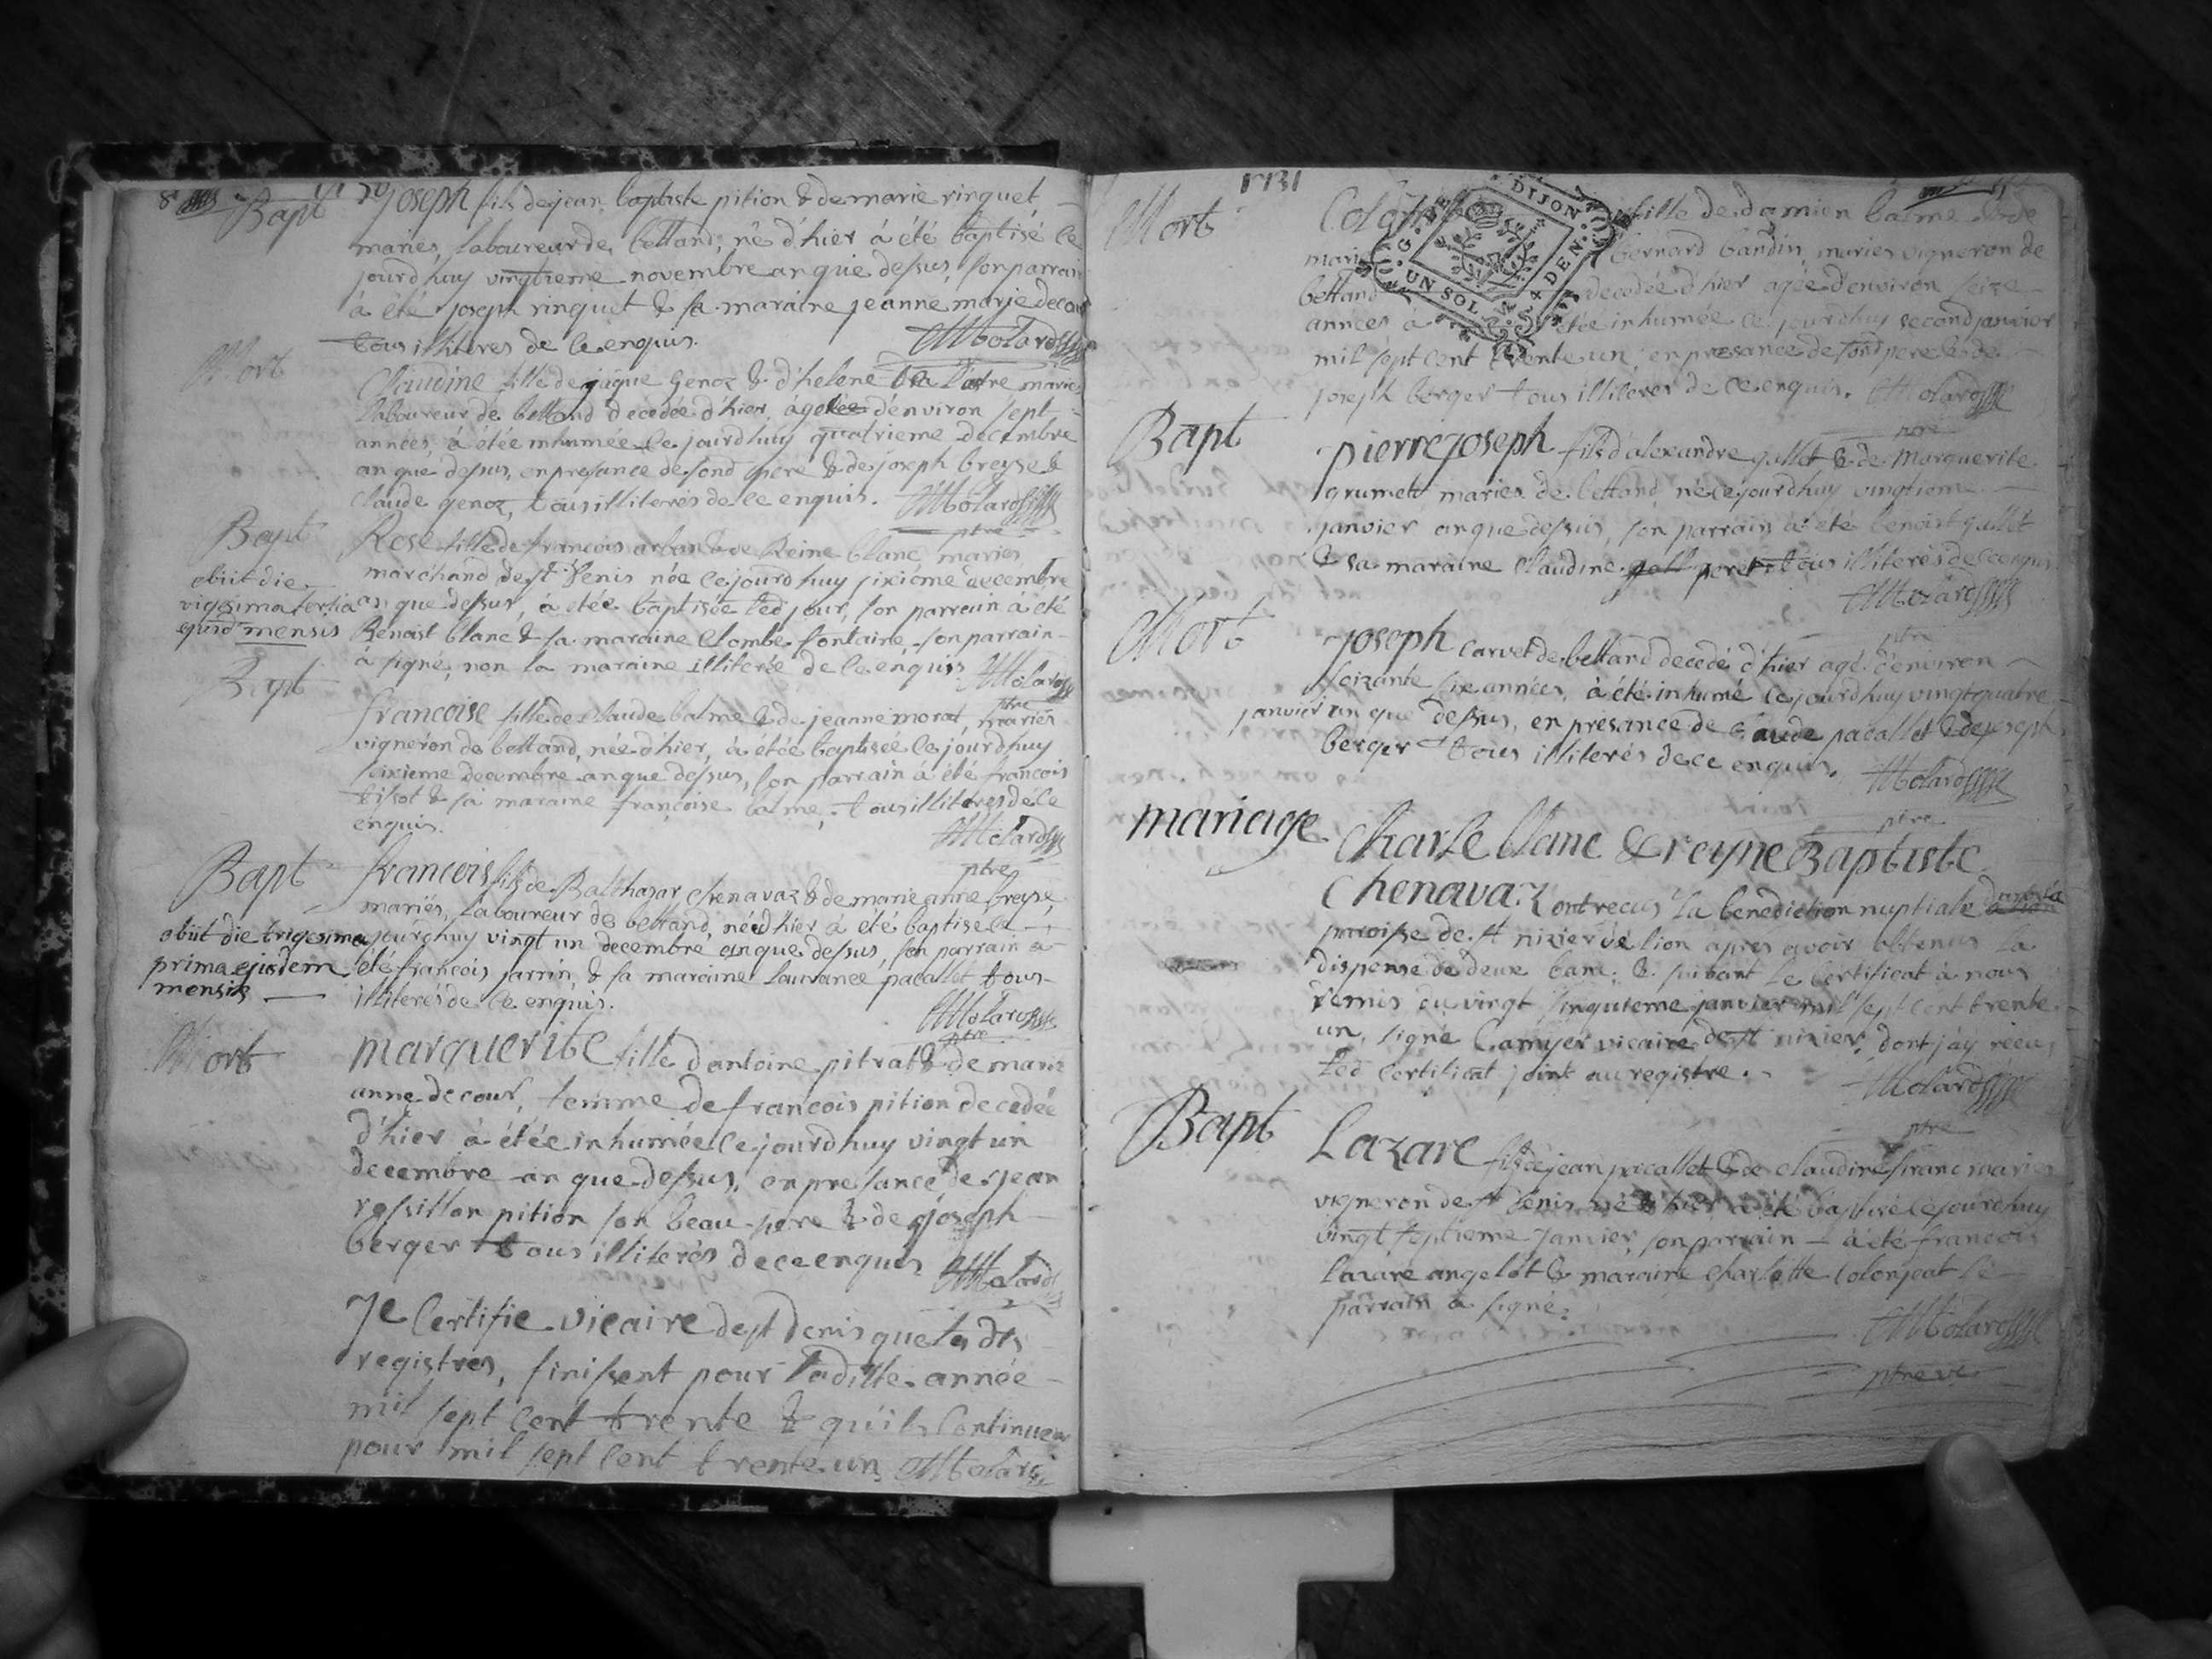 Bapt Joseph fils de jean baptiste pition & de marie rinquet
mariés, laboureur de bettand, né d'hier à été baptisé ce
jourdhuy vingtieme novembre an que dessus, son parrain
à été joseph rinquet & sa maraine jeanne marie decour
tous illiterés de ce enquis. Molard
Mort
Claudine fille de jaque genoz & d'helene mariés
laboureur de bettand decedée d'hier, agée d'environ sept
années, à étée inhumée ce jourdhuy quatrieme decembre
an que dessus, en presance de sond pere & de joseph breyse &
claude genoz, tous illiterés de ce enquis. Molard
ptre
Bapt Rose fille de francois & de Reine blanc mariés
obiit die marchand de st Denis née ce jourdhuy sixiéme decembre
vigesima tertia an que dessus, à étée baptisée led jour, son parrain à été
ejusd mensis Benoist blanc & sa maraine Clombe fontaine, son parrain
à signé, non la maraine illiterée de ce enquis. Molard
ptre
Bapt francoise fille de claude balme & de jeanne morat, mariés
vigneron de bettand, née d'hier, à étée baptisée ce jourdhuy
seixieme decembre an que dessus, son parrain à été francois
tissot & sa maraine françoise balme, tous illiterés de ce
enquis. Molard
ptre
Bapt francois fils de Balthazar chenavaz & de marie anne breyse,
mariés, laboureur de bettand, né d'hier à été baptisé ce
obiit die trigesima jourdhuy vingt un decembre an que dessus, son parrain a
prima ejusdem été francois jarrin, & sa maraine laurance pacallet tous
mensis illiterés de ce enquis.
Molard
ptre
Mort marguerite fille d'antoine pitrat & de marie
anne decour, femme de francois pition decedée
d'hier à étée inhumée ce jourdhuy vingt un
decembre an que dessus, en presance de jean
rossillon pition son beau pere & de joseph
berger tous illiterés de ce enquis Molard
Je Certifie vicaire de st Denis que les dts
registres, finissent pour laditte année
mil sept cent trente & qu'ils Continuent
pour mil sept cent trente un Molard
1731
Mort fille de damien balme & de
mari bernard bandin, mariés vigneron de
bettand decedée d'hier agée d'environ seize
années à étée inhumée ce jourdhuy second janvier
mil sept cent trente un, en presance de sond pere & de
joseph berger tous illiterés de ce enquis. Molard
ptre
Bapt pierre joseph fils d'alexandre gallet & de Marguerite
grumet mariés de bettand né ce jourdhuy vingtieme
janvier an que dessus, son parrain à été benoist gallet
& sa maraine claudine peret tous illiterés de ce enquis
Molard
ptre
Mort Joseph Carvet de bettand decedé d'hier agé d'environ
soizante six années, à été inhumé ce jourdhuy vingt quatre
janvier an que dessus, en presance de Claude pacallet & de joseph
berger tous illiterés de ce enquis.
Molard
ptre
mariage Charle blanc & reyne Baptiste
Chenavaz ont recus la benediction nuptiale dans la
paroisse de st nizier de lion apres avoir obtenus la
dispense de deux bans & suivant le certificat à nous
remis du vingt sinquieme janvier mil sept cent trente
un, signé Camyer vicaire de st nizier, dont j'ay recus
led certificat joint au registre.
Molard
ptre
Bapt Lazare fils de jean pacallet & de claudine franc mariés
vigneron de st Denis né d'hier à été baptisé ce jourdhuy
vingt septieme Janvier, son parrain à été francois
lazare angelot & maraine charlotte colonjeat le
parrain a signé.
Molard
ptre vic
DIJON
UN SOL 4 DEN.